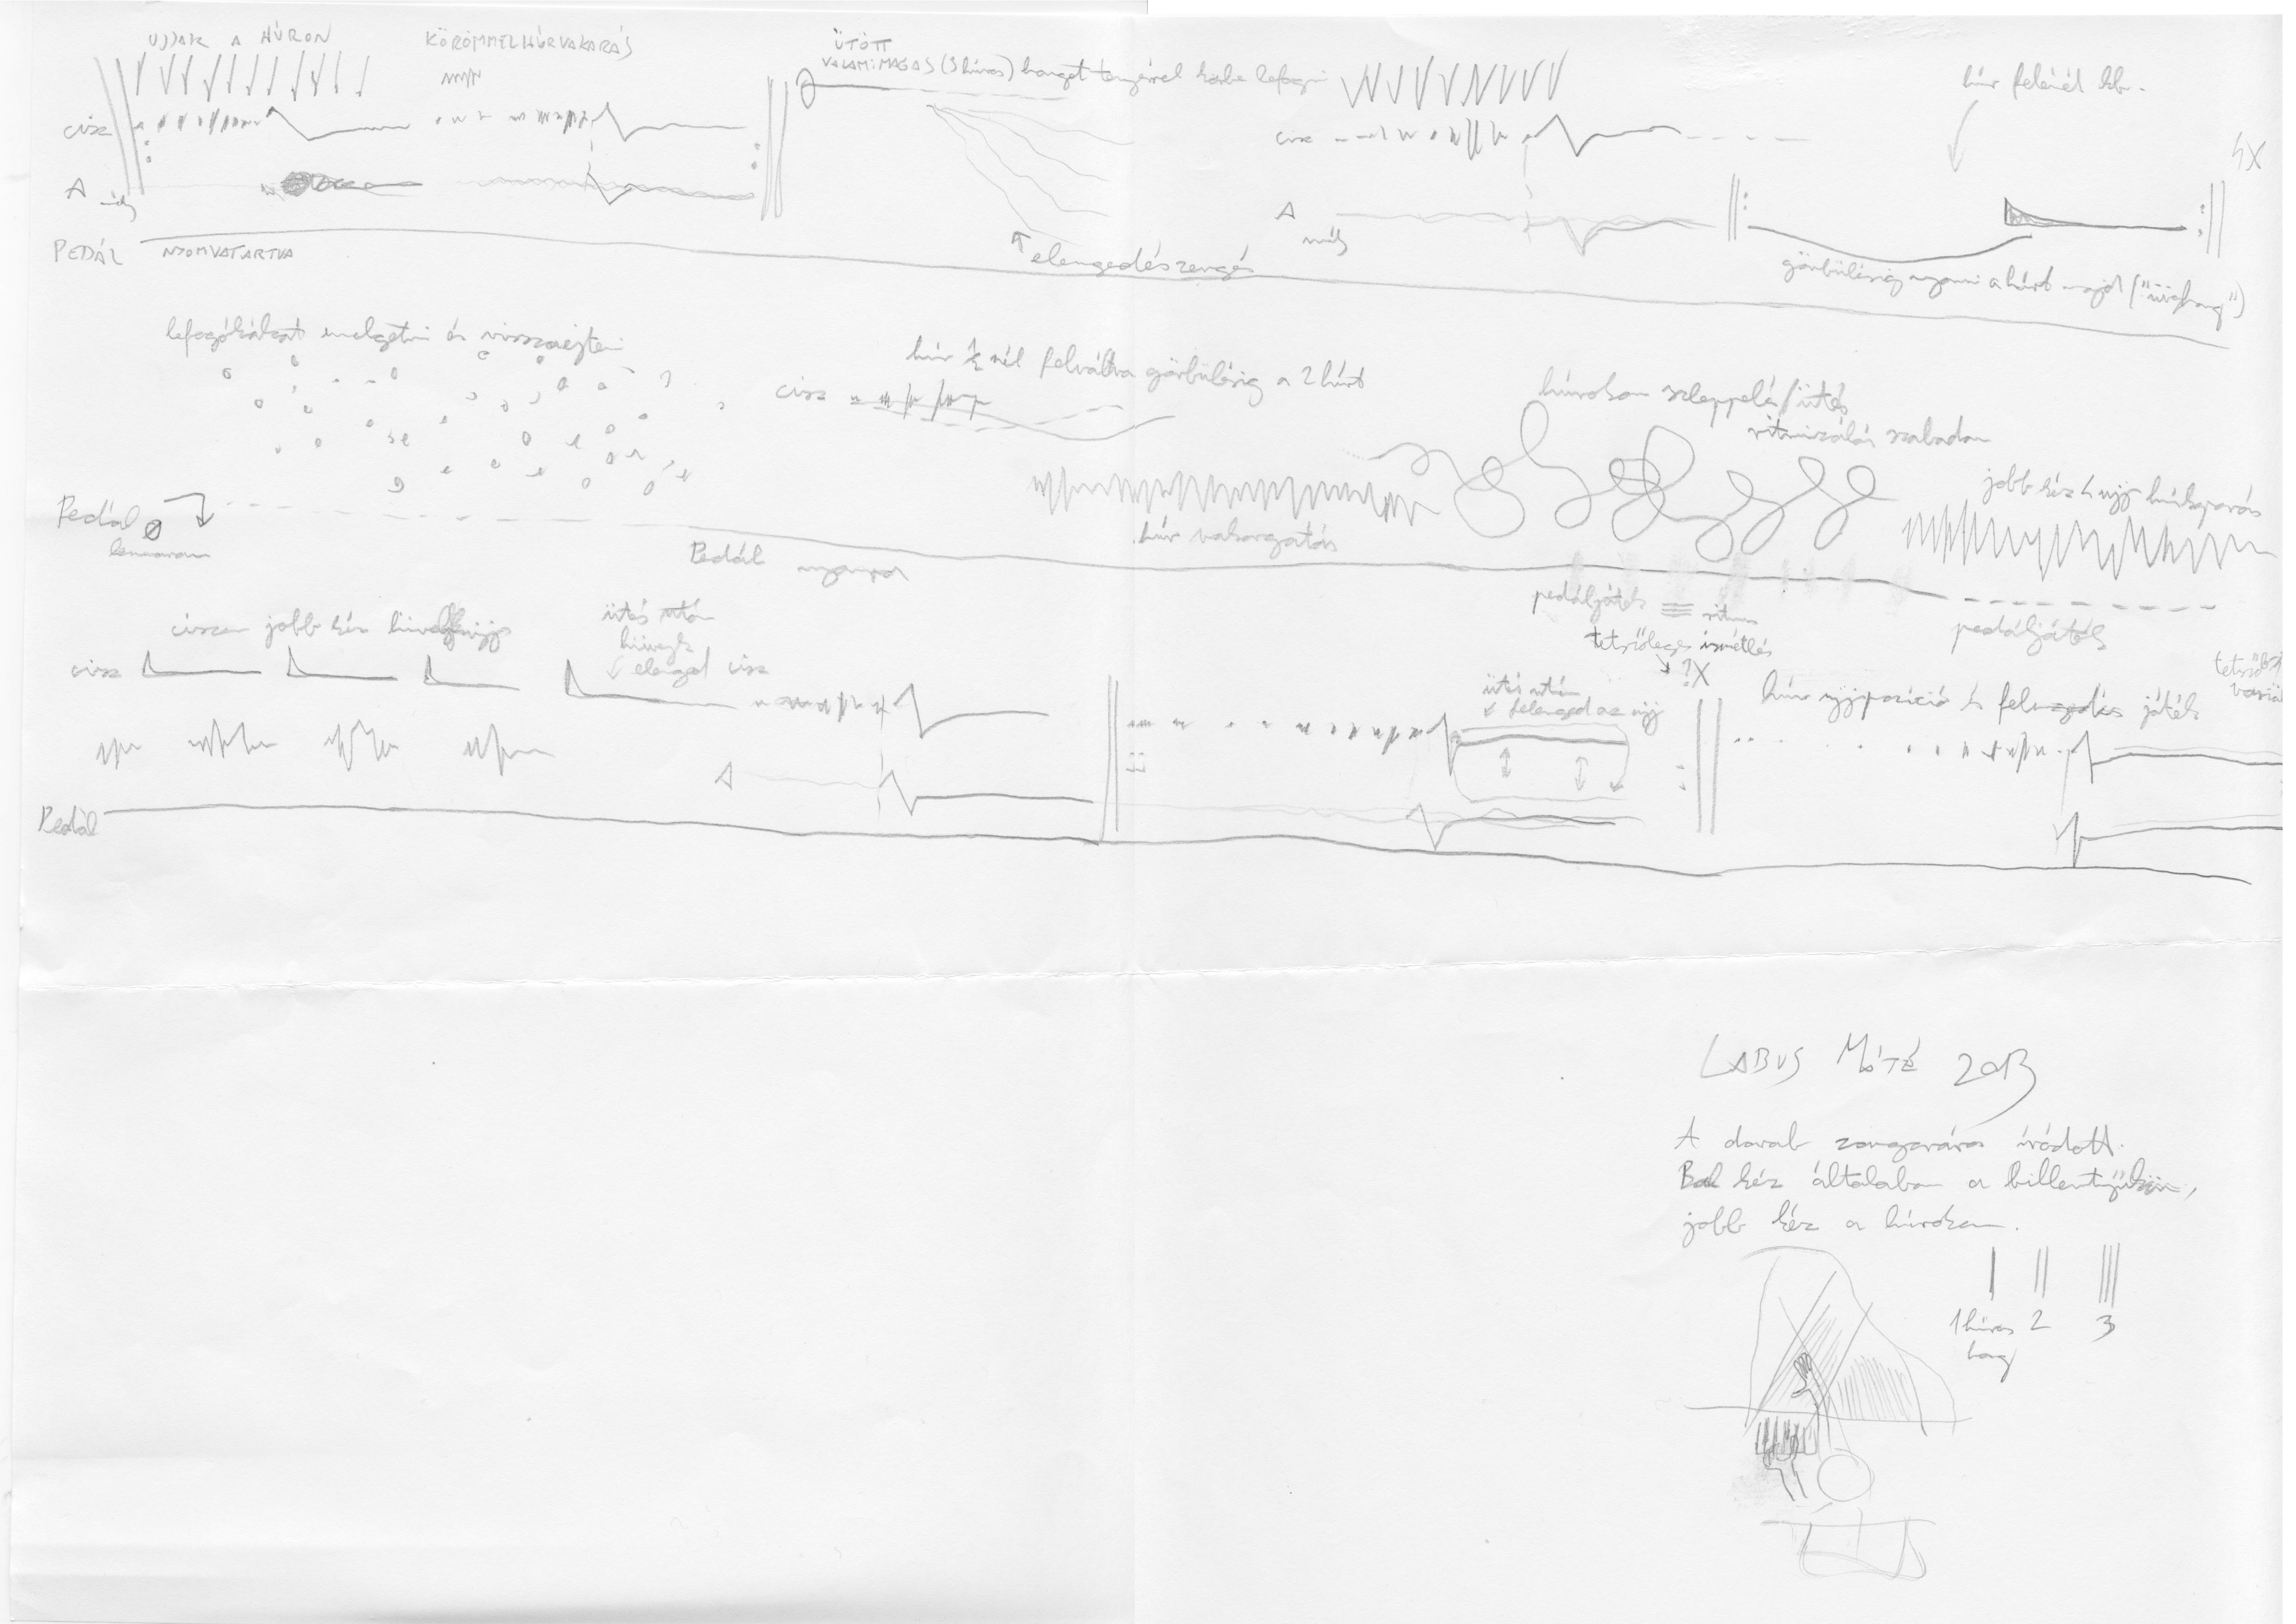 UJJAK A HÚRON
KÖRÖMMEL HÚRVAKARÁS
ÜTÖTT
VALAMI MAGAS (3 húros) hangot tenyérrel lefogni
húr felénél kb.
cisz
cisz
4X
A mély
A mély
PEDÁL NYOMVATARTVA
elengedés zengés
görbülésig nyomni a húrt majd ("üveghang")
lefogókákat emelgetni és visszaejteni
húr 1/2 nél felváltva görbülésig a 2 húrt
cisz
húrokon szleppelés/ütés
ritmizálás szabadon
jobb kéz 4 ujj húrkaparás
Pedál
húr vakargatás
Pedál nyomva
pedáljáték ritmus
pedáljáték
ciszen jobb kéz hüvelykujj
ütés után
hüvelyk
elenged cisz
tetszőleges ismétlés
?X
cisz
ütés után
felenged az ujj
húr ujjpozíció és felengedés játék
A
Pedál
LABUS MÁTÉ 2013
A darab zongorára íródott.
Bal kéz általában a billentyűkön,
jobb kéz a húrokon.
1 húros 2 3
hang